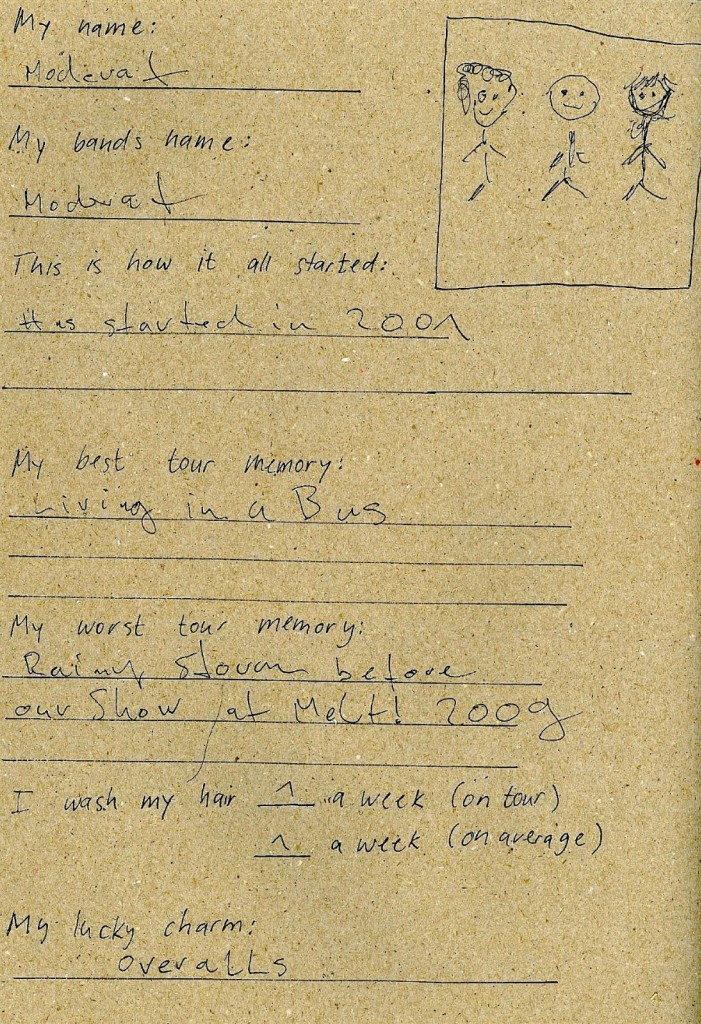 My name:
Moderat
My bands name:
Moderat
This is how it all started:
started in 2001
My best tour memory:
Living in a Bus
My worst tour memory:
Rainy Storm before
our Show at Melt! 2009
I wash my hair 1 a week (on tour)
1 a week (on average)
My lucky charm:
overalls